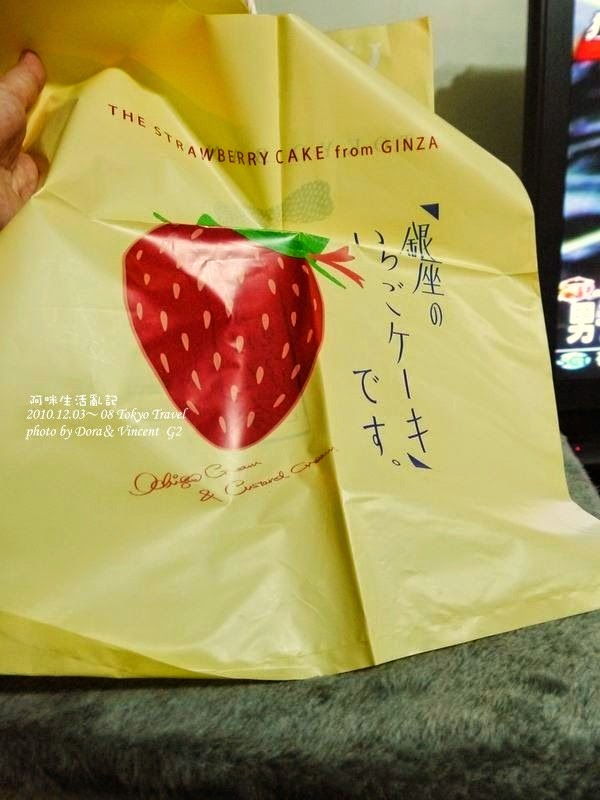 THE STRAWBERRY CAKE from GINZA
「銀座の
いちごケーキ」
です。
Ichigo Cream
& Custard Cream
阿咪生活亂記
2010.12.03~ 08 Tokyo Travel
photo by Dora & Vincent G2
男